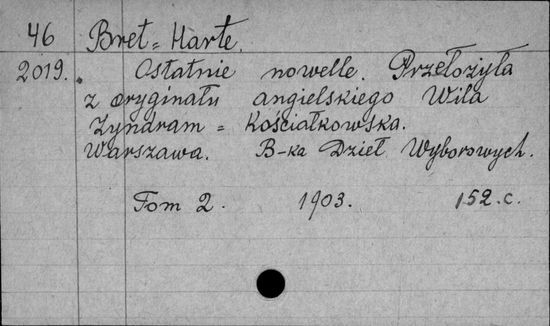 46 Bret=Harte.
2019. Ostatnie nowelle. Przełożyła
z oryginału angielskiego Wila
Zyndram=Kościałkowska.
Warszawa. B-ka Dzieł Wyborowych.
Tom 2. 1903. 152.c.